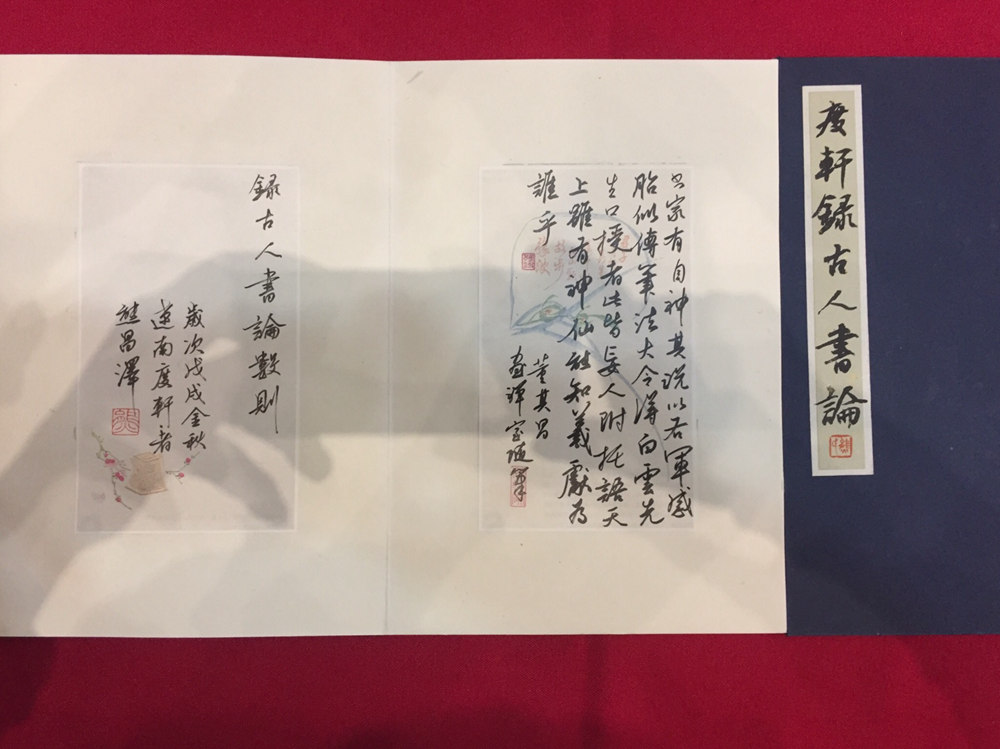 度軒録古人書論
書家有自神其説以右軍感
胎似傳筆法大令得白雲先
生口授者此皆妄人附托語天
上雖有神仙能知羲獻為
誰乎
董其昌
畫禪室随筆
録古人書論數則
歲次戊戌金秋
遼南度軒者
熊昌澤